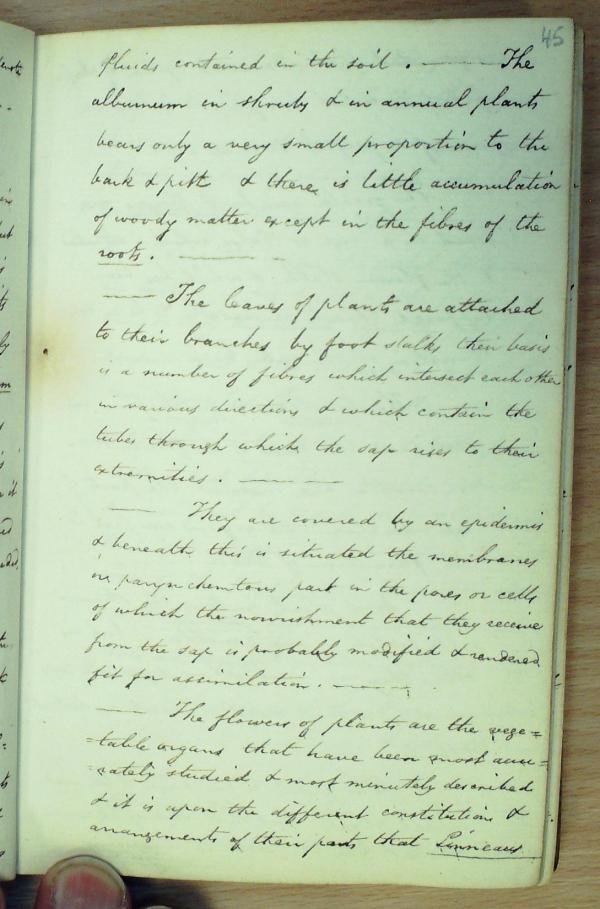 45
fluids contained in the soil. —— The
alburnum in shrubs & in annual plants
bears only a very small proportion to the
bark & pith & there is little accumulation
of woody matter except in the fibres of the
roots. ——
—— The leaves of plants are attached
to their branches by foot stalks their basis
is a number of fibres which intersect each other
in various directions & which contain the
tubes through which the sap rises to their
extremities. ——
—— They are covered by an epidermis
& beneath this is situated the membranes
or parynchemtous part in the pores or cells
of which the nourishment that they receive
from the sap is probably modified & rendered
fit for assimilation. ——
—— The flowers of plants are the vege=
=table organs that have been most accu=
=rately studied & most minutely described
& it is upon the different constitutions &
arrangements of their parts that Linnaeus